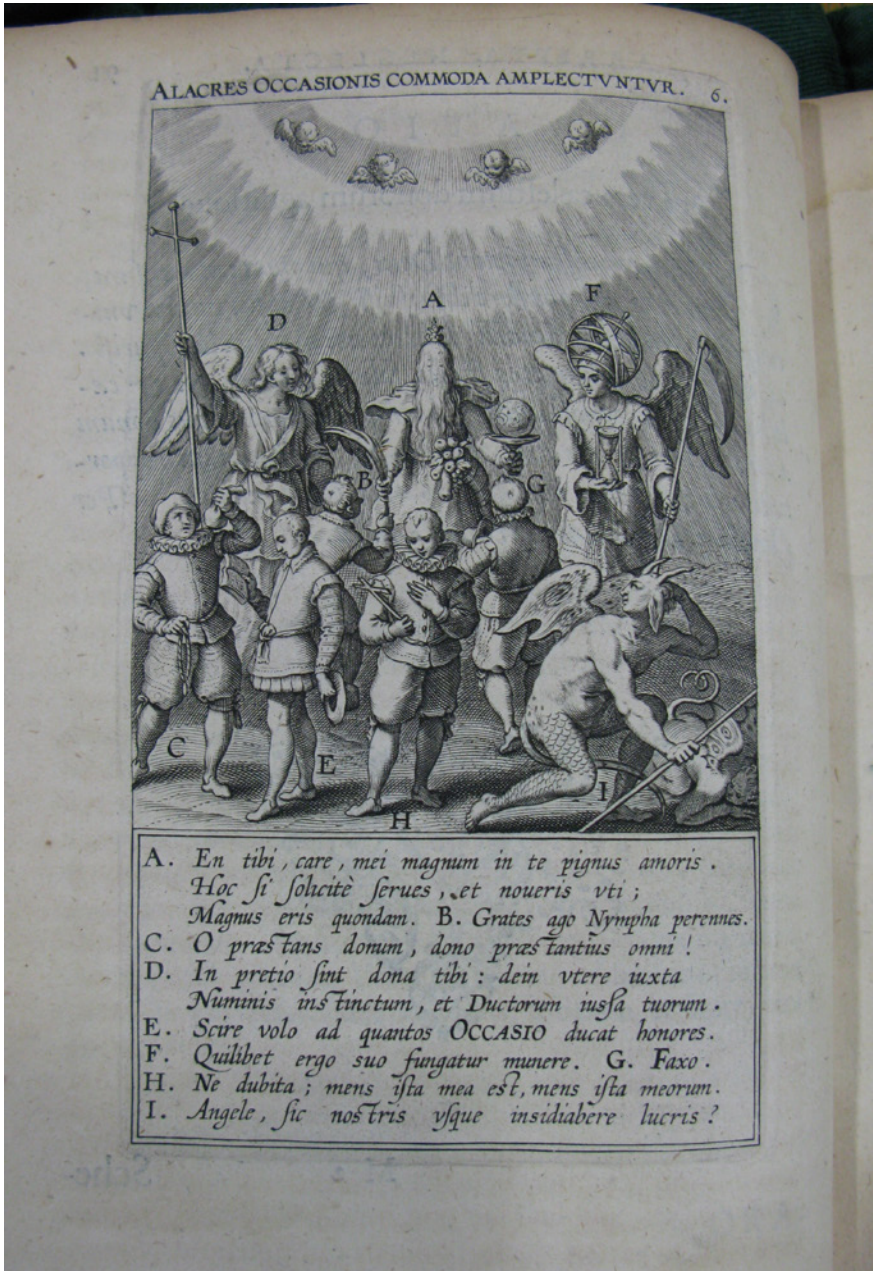 ALACRES OCCASIONIS COMMODA AMPLECTVNTVR. 6.
A
F
D
B
G
C
E
I
H
A. En tibi, care, mei magnum in te pignus amoris.
Hoc si solicitè serues, et noueris vti;
Magnus eris quondam. B. Grates ago Nympha perennes.
C. O præstans donum, dono præstantius omni!
D. In pretio sint dona tibi: dein vtere iuxta
Numinis instinctum, et Ductorum iussa tuorum.
E. Scire volo ad quantos OCCASIO ducat honores.
F. Quilibet ergo suo fungatur munere. G. Faxo.
H. Ne dubita; mens ista mea est, mens ista meorum.
I. Angele, sic nostris vsque insidiabere lucris?